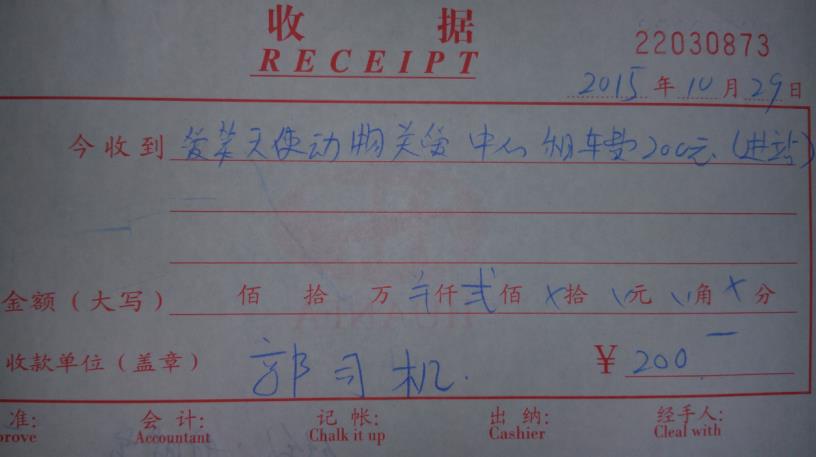 收 据
RECEIPT
22030873
2015 年 10 月 29 日
今收到 爱笨天使动物关爱中心租车费200元(进站)
金额（大写） 佰 拾 万 仟 弍 佰 拾 元 角 分
收款单位（盖章） 郭司机. ¥ 200
准: 会 计: 记 帐: 出 纳: 经手人:
prove Accountant Chalk it up Cashier Cleal with